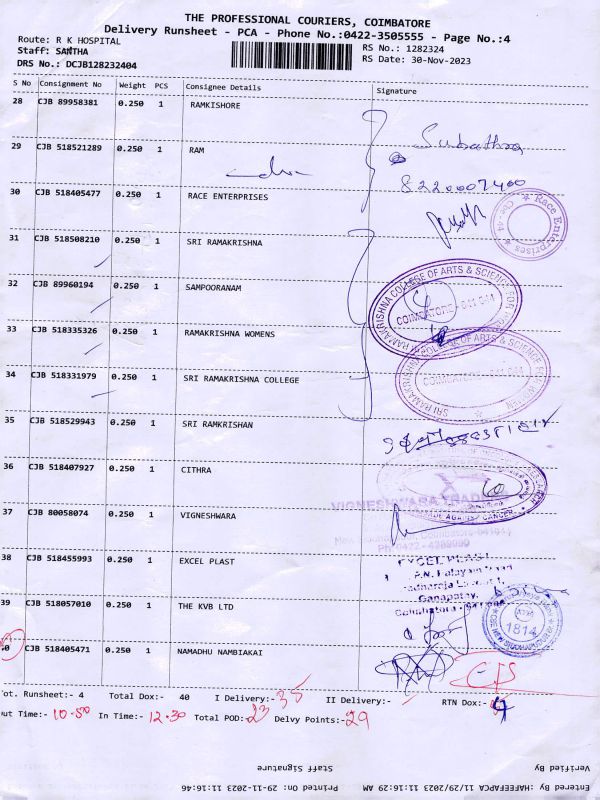 THE PROFESSIONAL COURIERS, COIMBATORE
Delivery Runsheet - PCA - Phone No.:0422-3505555 - Page No.:4
Route: R K HOSPITAL RS No.: 1282324
Staff: SANTHA RS Date: 30-Nov-2023
DRS No.: DCJB128232404
S No Consignment No Weight PCS Consignee Details Signature
28 CJB 89958381 0.250 1 RAMKISHORE
Subathra
29 CJB 518521289 0.250 1 RAM
8220007400
30 CJB 518405477 0.250 1 RACE ENTERPRISES
Race Enterprises
Cbe-44
31 CJB 518508210 0.250 1 SRI RAMAKRISHNA
32 CJB 89960194 0.250 1 SAMPOORANAM
RAMAKRISHNA COLLEGE OF ARTS & SCIENCE FOR
COIMBATORE - 641 044
33 CJB 518335326 0.250 1 RAMAKRISHNA WOMENS
34 CJB 518331979 0.250 1 SRI RAMAKRISHNA COLLEGE
SRI RAMAKRISHNA COLLEGE OF ARTS & SCIENCE FOR WOMEN
COIMBATORE - 641 044
35 CJB 518529943 0.250 1 SRI RAMKRISHAN
36 CJB 518407927 0.250 1 CITHRA
AGAINST CANCER
37 CJB 80058074 0.250 1 VIGNESHWARA
VIGNESHWARA TRADING
38 CJB 518455993 0.250 1 EXCEL PLAST
EXCEL PLAST
Ganapathy,
Coimbatore
39 CJB 518057010 0.250 1 THE KVB LTD
1814
40 CJB 518405471 0.250 1 NAMADHU NAMBIAKAI
ot. Runsheet:- 4 Total Dox:- 40 I Delivery:- 35 II Delivery:- RTN Dox:- 4
ut Time:- 10.50 In Time:- 12.30 Total POD:- 23 Delvy Points:- 29
Staff Signature Verified By
Printed On: 29-11-2023 11:16:46 Entered By: HAFEEFAPCA 11/29/2023 11:16:29 AM